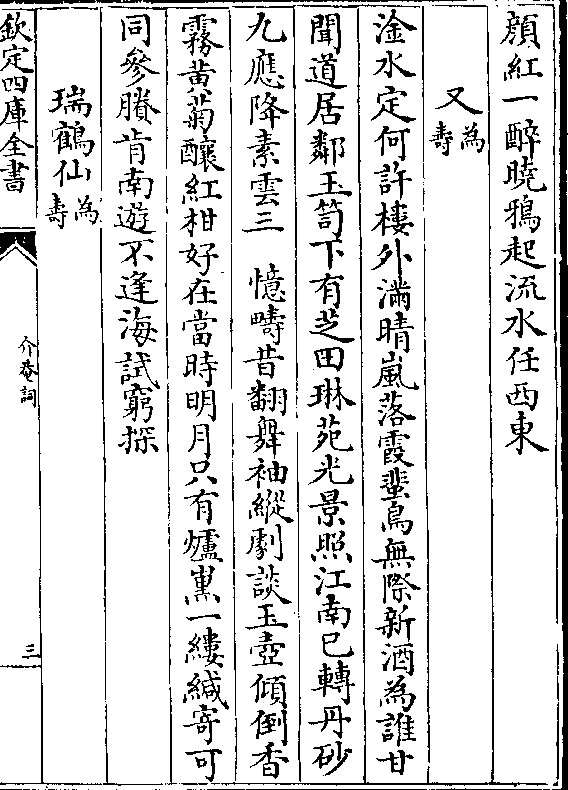 顔紅一醉曉鴉起流水任西東
又為壽
淦水定何許樓外滿晴嵐落霞蜚鳥無際新酒為誰甘
聞道居鄰玉笥下有芝田琳苑光景照江南已轉丹砂
九應降素雲三　憶疇昔翻舞袖縱劇談玉壺傾倒香
霧黄菊釀紅柑好在當時明月只有爐熏一縷緘寄可
同參賸肯南遊不逢海試窮探
瑞鶴仙為壽
欽定四庫全書
介菴詞
三